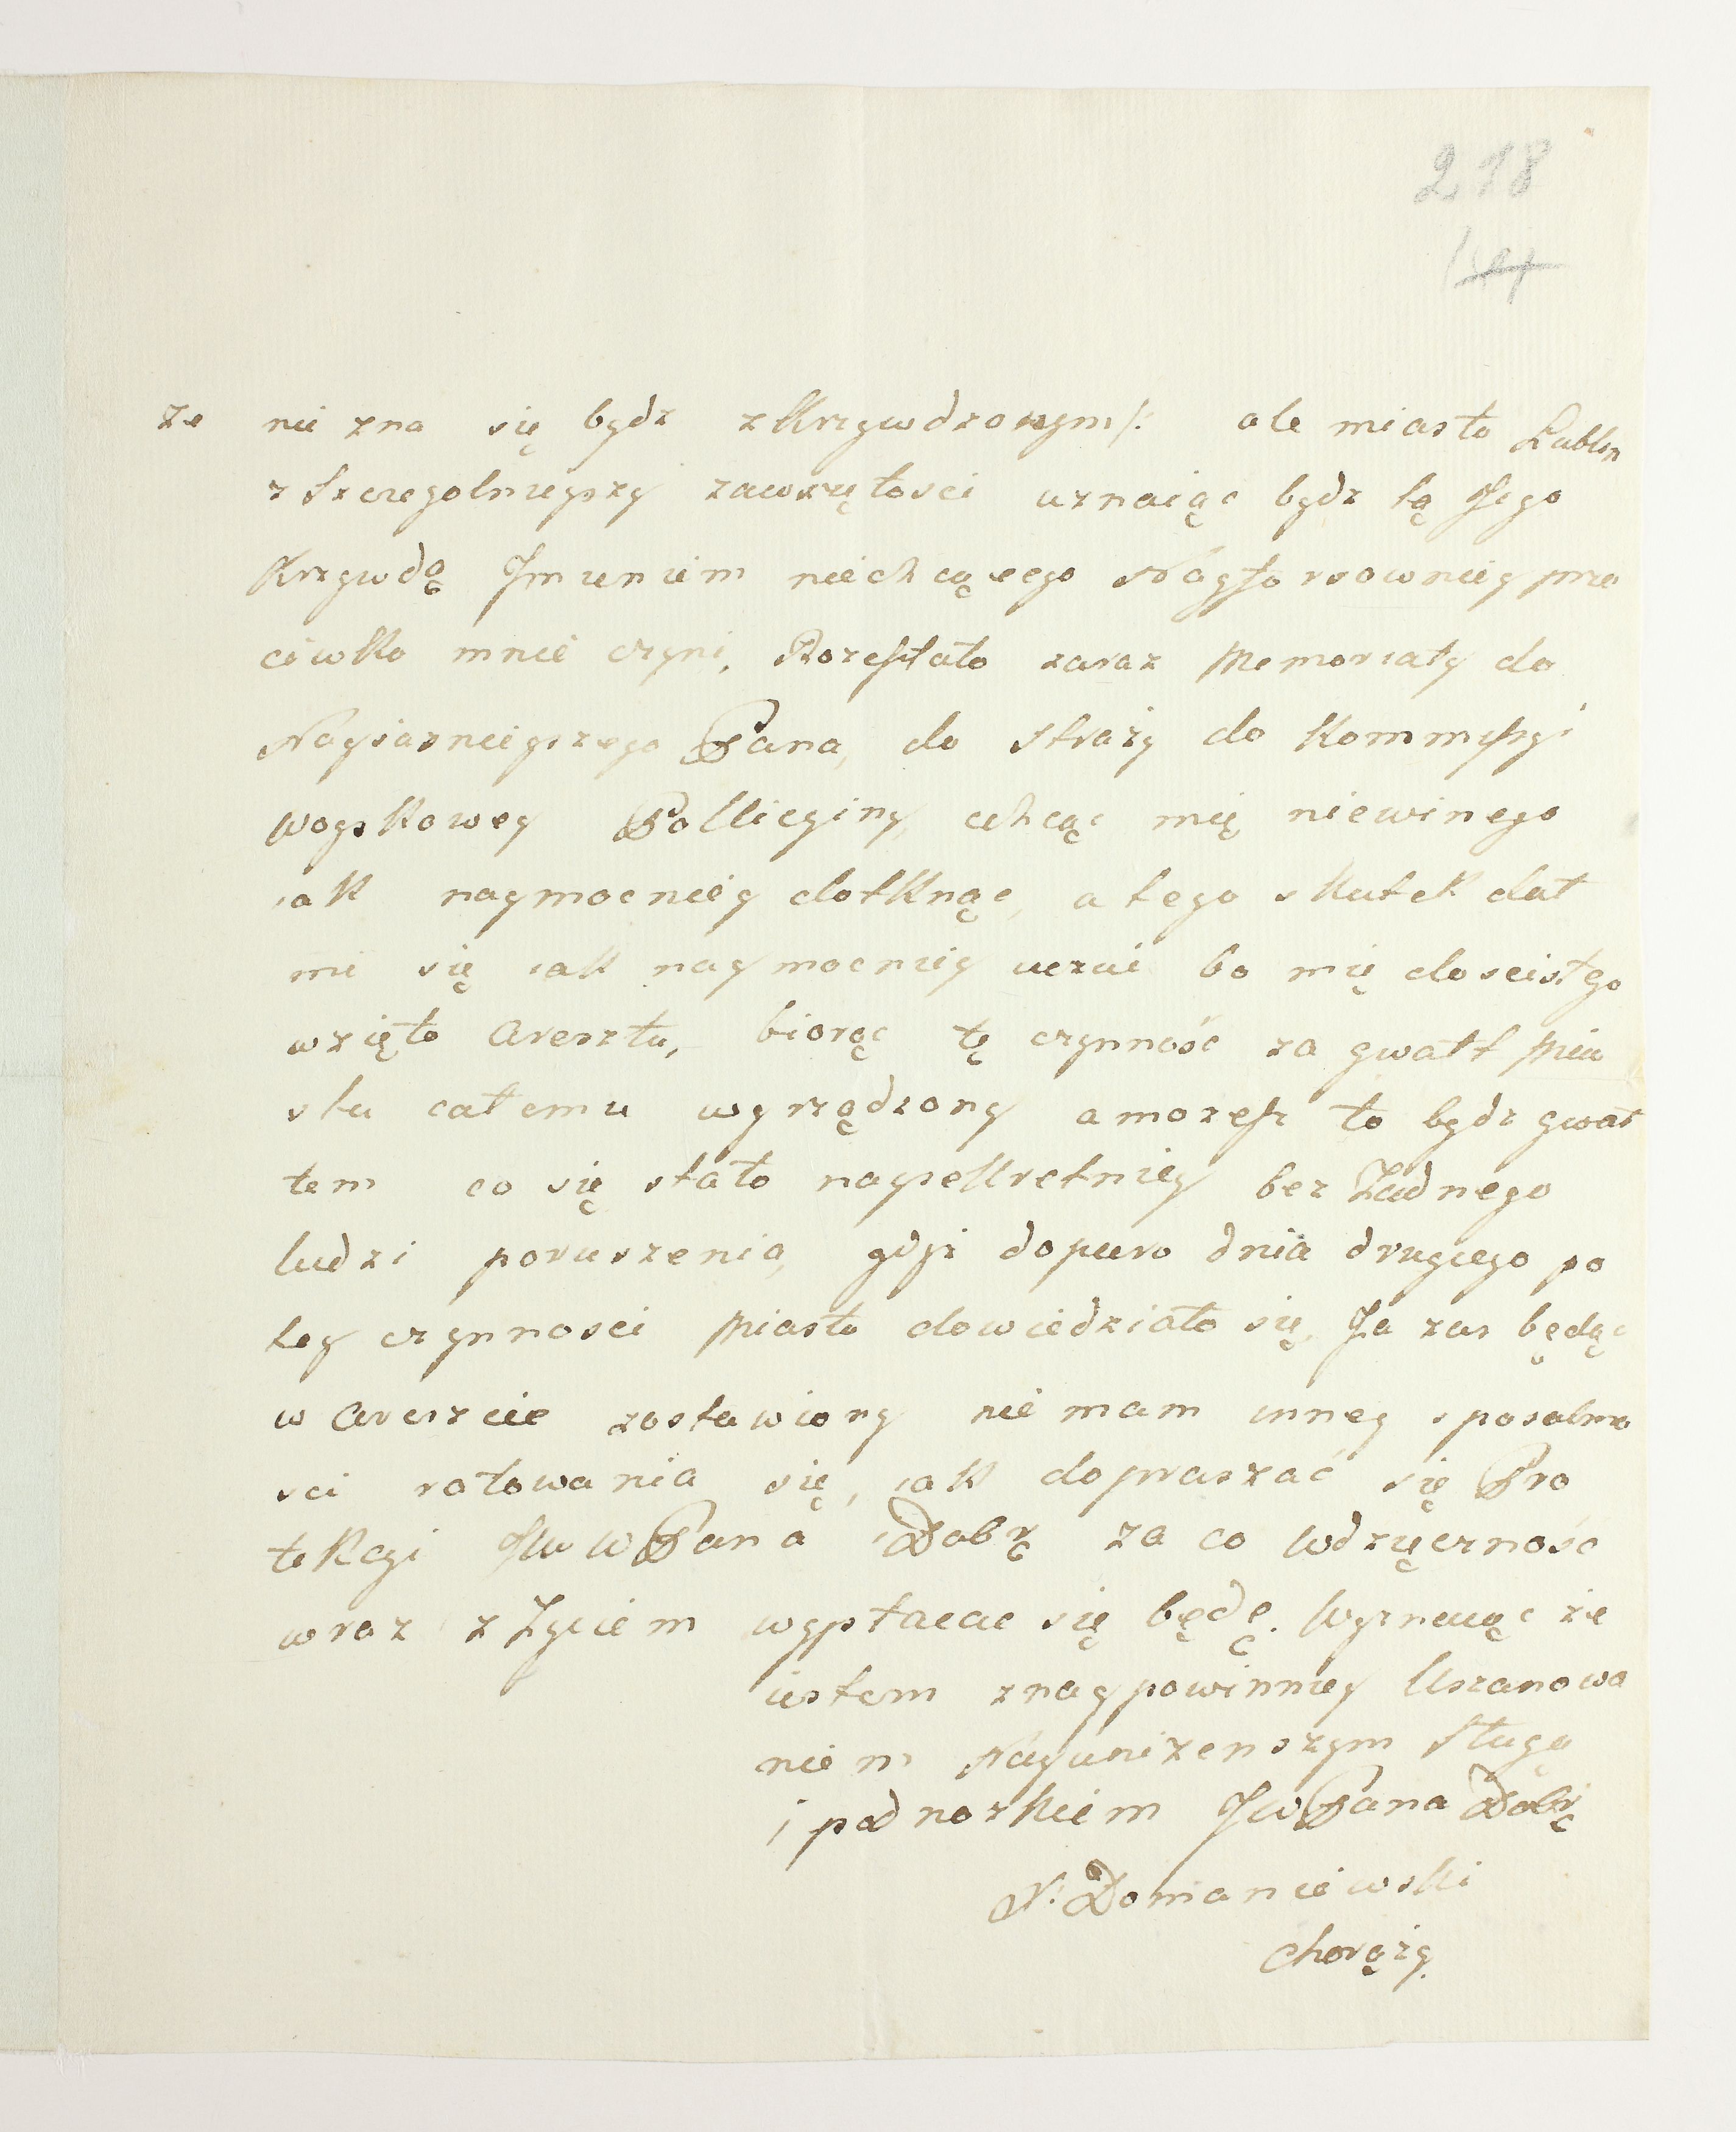 218
ze nie zna się bydz zkrzywdzonym/: ale miasto Lublin
z szczegolnieyszy zawziętosci uznaiąc bydz tą Jego
Krzywdą Jmieniem niechcącego Naysforsownieyprze
ciwko mnie czyni, Rozesłało zaraz Memoriały do
Nayiasnieyszego Pana, do Straży do Kommissyi
Woyskowey Pollicyiny, chcąc mię niewinego
iak naymocniey dotknąc, a tego skutek dał
mi się iak naymocniey uczuć bo mię do scisłego
wzięto Aresztu, biorąc tę czynność za gwałt Mia
stu całemu wyrządzony a możesz to bydz gwał
tem co się stało naysekretniey bez Żadnego
ludzi poruszenia, gdyż dopiero dnia drugiego po
tey czynnosci Miasto dowiedziało się, Ja zas będąc
w Areszcie zostawiony nie mam inney sposobno
sci ratowania się, iak dopraszać się Pro
tekcyi JW W Pana Dobr za co wdzięcznosc
wraz z Życiem wypłacac się będę. Wyznaiąc że
iestem znaypowinniey Uszanowa
niem Nayunizenszym Sługą
i podnozkiem JWPana Dobr
N: Domaniewski
Chorąży.